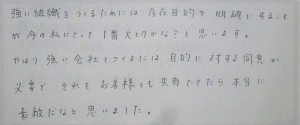 強い組織をつくるためには 存在目的を 明確にすること
が 今の私にとって 1番大切かな？と思います。
やはり 強い会社をつくるには 目的に対する同意が
必要で それを お客様とも共有できたら 本当に
素敵だなと 思いました。